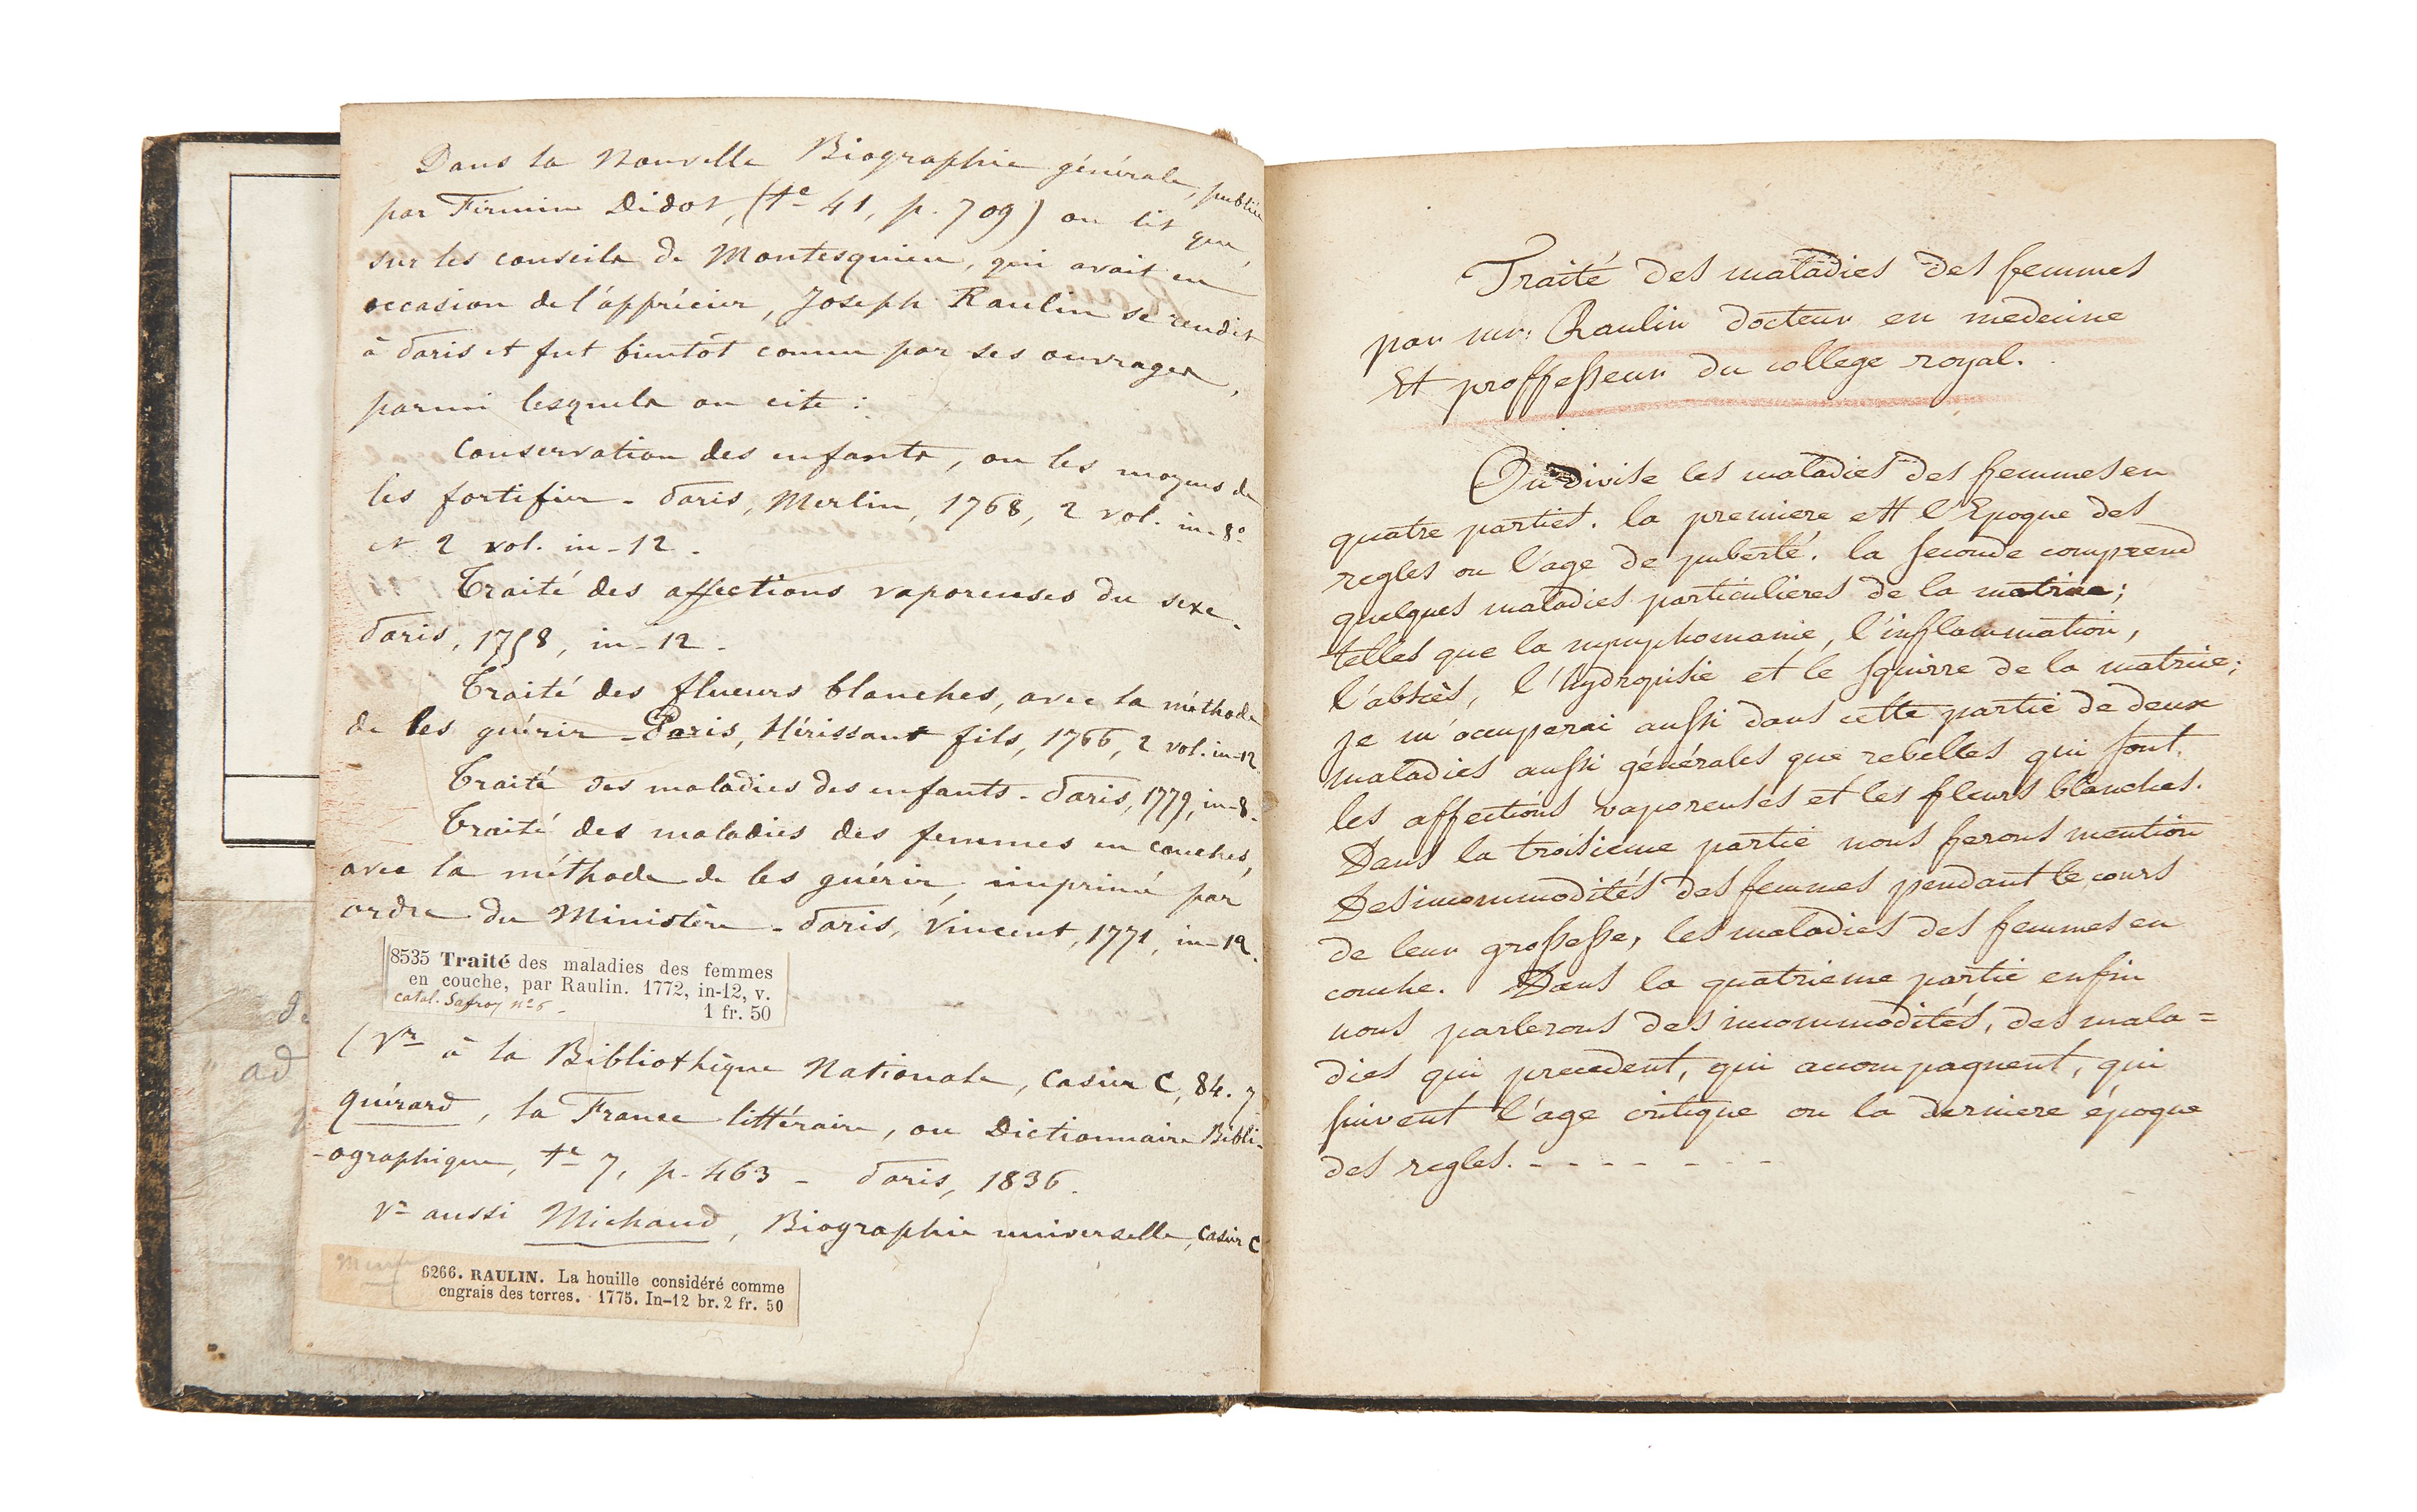 Dans la Nouvelle Biographie générale, publiée
par Firmin Didot, (te 41, p. 709) on lit que,
sur les conseils de Montesquieu, qui avait eu
occasion de l'apprécier, Joseph Raulin se rendit
à Paris et fut bientôt connu par ses ouvrages,
parmi lesquels on cite :
Conservation des enfants, ou les moyens de
les fortifier - Paris, Merlin, 1768, 2 vol. in-8°
et 2 vol. in-12.
Traité des affections vaporeuses du sexe.
Paris, 1758, in-12.
Traité des flueurs blanches, avec la méthode
de les guérir - Paris, Hérissant fils, 1766, 2 vol. in-12.
Traité des maladies des enfants - Paris, 1779, in-8.
Traité des maladies des femmes en couches,
avec la méthode de les guérir, imprimé par
ordre du Ministère - Paris, Vincent, 1771, in-12.
8535 Traité des maladies des femmes
en couche, par Raulin. 1772, in-12, v.
catal. Safroy n° 6 - 1 fr. 50
(Vr à la Bibliothèque Nationale, casier C, 84. 7
Quérard, la France littéraire, ou Dictionnaire Bibli-
-ographique, te 7, p. 463 - Paris, 1836.
Vr aussi Michaud, Biographie universelle, casier C
6266. RAULIN. La houille considéré comme
engrais des terres. 1775. In-12 br. 2 fr. 50
ad
Traité des maladies des femmes
par mr: Raulin docteur en medecine
Et proffesseur du college royal.
On divise les maladies des femmes en
quatre parties. la premiere est l'Epoque des
regles ou l'age de puberté. la seconde comprend
quelques maladies particulieres de la matrice;
telles que la nymphomanie, l'inflammation,
l'absès, l'hydropisie et le squirre de la matrice;
je m'occuperai aussi dans cette partie de deux
maladies aussi générales que rebelles qui sont
les affections vaporeuses et les fleurs blanches.
Dans la troisieme partie nous ferons mention
Des incommodités des femmes pendant le cours
de leur grossesse, les maladies des femmes en
couche. Dans la quatrieme partie enfin
nous parlerons des incommodités, des mala=
dies qui precedent, qui accompagnent, qui
suivent l'age critique ou la derniere époque
des regles. - - - - - - -